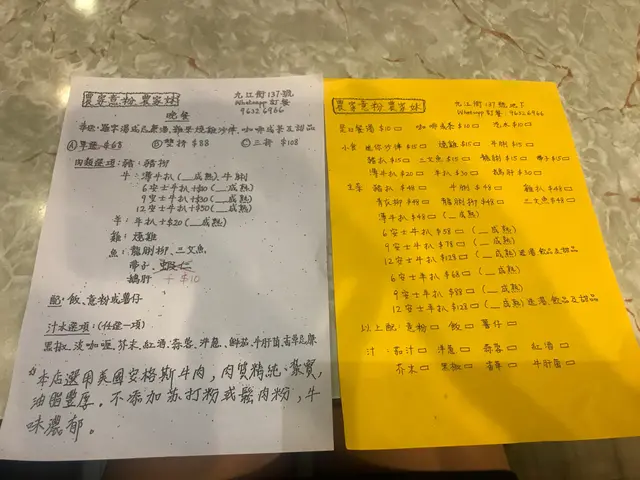 農家意粉 農家妹
九江街137號
Whatsapp 訂餐
9632 6966
晚餐
Ⓐ單拼$68 Ⓑ雙拼$88 Ⓒ三拼$108
肉類選項：豬：豬扒
牛：薄牛扒（__成熟）、牛脷
6安士牛扒+$20（__成熟）
9安士牛扒+$30（__成熟）
12安士牛扒+$50（__成熟）
羊：牛扒+$20（__成熟）
雞：燒雞
魚：龍脷柳、三文魚
帶子、蝦仁
鵝肝 +$10
配、飯、意粉或薯仔
汁木選項：（任選一項）
黑椒、淡咖喱、芥末、紅酒、洋蔥、鮮茄、牛肝菌
*本店選用美國安格斯牛肉，肉質精純、紮實，
油脂豐厚。不添加苏打粉或鬆肉粉，牛
味濃郁。
農家意粉 農家妹
九江街137號地下
Whatsapp 訂餐：96326966
是日餐湯$10□ 咖啡或茶$10□ 汽水$10□
小食 迷你沙律$15□ 燒雞$15□ 牛脷$15□
豬扒$15□ 三文魚$15□ 龍脷$15□ 帶子$15□
薄牛扒$20□ 羊扒$30□ 鵝肝$30□
主菜 豬扒$48□ 牛脷$48□ 雞扒$48□
龍脷柳$48□ 三文魚$48□
薄牛扒$48□（__成熟）
6安士牛扒$58□（__成熟）
9安士牛扒$78□（__成熟）
12安士牛扒$128□（__成熟）送湯、飲品及甜品
6安士牛扒$68□（__成熟）
9安士牛扒$88□（__成熟）
12安士牛扒$138□（__成熟）送湯、飲品及甜品
以上配：意粉□ 飯□ 薯仔□
汁：茄汁□ 洋蔥□ 紅酒□
芥末□ 黑椒□ 牛肝菌□